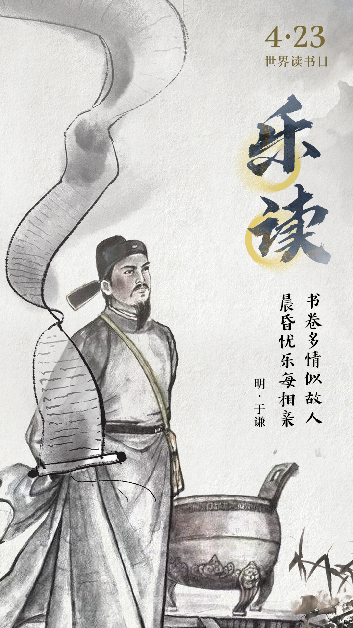 4·23
世界读书日
乐
读
书卷多情似故人
晨昏忧乐每相亲
明·于谦